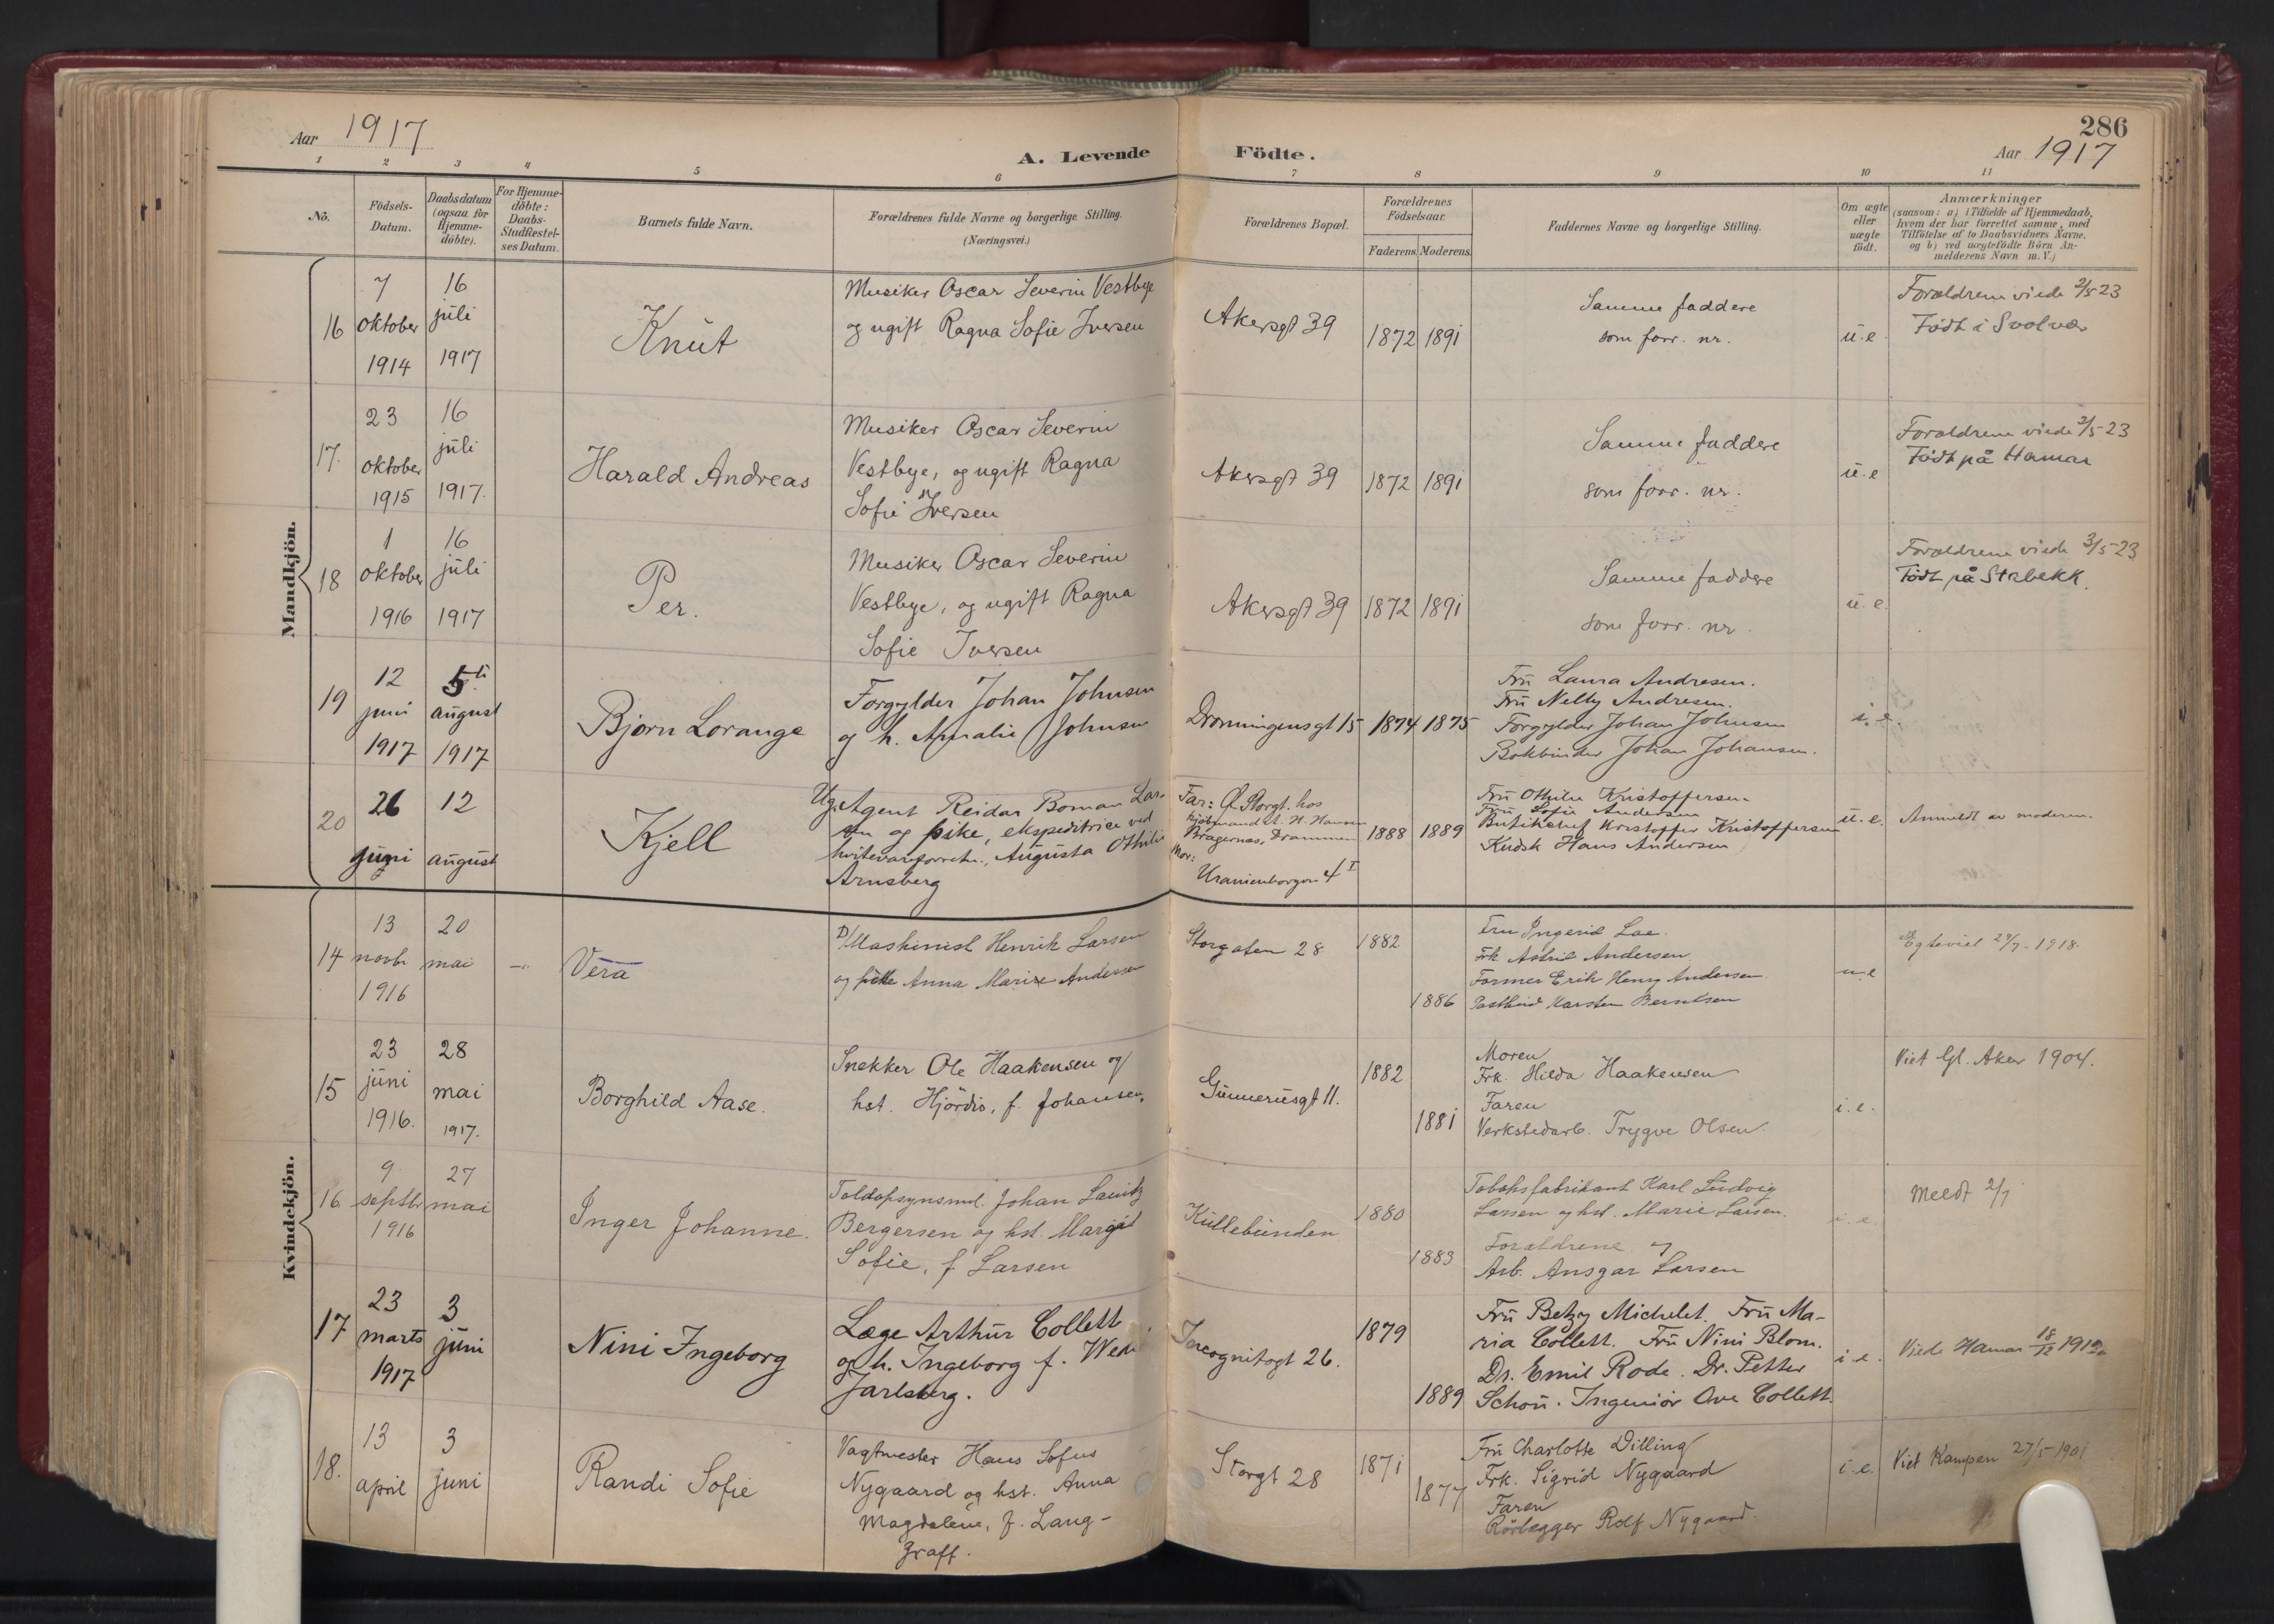 286
Aar 1917
A. Levende Födte.
Aar 1917
1 2 3 4 5 6 7 8 9 10 11
No.
Födsels-
Datum.
Daabsdatum
(ogsaa for
Hjemme-
döbte).
For Hjemme-
döbte:
Daabs-
Stadfæstel-
ses Datum.
Barnets fulde Navn.
Forældrenes fulde Navne og borgerlige Stilling.
(Næringsvei.)
Forældrenes Bopæl.
Forældrenes
Födselsaar.
Faderens. Moderens.
Faddernes Navne og borgerlige Stilling.
Om ægte
eller
uægte
födt.
Anmærkninger
(saasom: a) i Tilfælde af Hjemmedaab,
hvem der har forrettet samme, med
Tilföielse af to Daabsvidners Navne,
og b) ved uægtefödte Börn An-
melderens Navn m. V.)
Mandkjön.
16
7
oktober
1914
16
juli
1917
Knut
Musiker Oscar Severin Vestbye
og ugift Ragna Sofie Iversen
Akersgt 39
1872 1891
Samme faddere
som forr. nr.
u.e.
Forældrene viede 2/5 23
Født i Svolvær
17.
23
oktober
1915
16
juli
1917.
Harald Andreas
Musiker Oscar Severin
Vestbye, og ugift Ragna
Sofie Iversen
Akersgt 39
1872 1891
Samme faddere
som forr. nr.
u.e
Forældrene viede 2/5 23
Født på Hamar
18
1
oktober
1916
16
juli
1917
Per.
Musiker Oscar Severin
Vestbye, og ugift Ragna
Sofie Iversen
Akersgt 39
1872 1891
Samme faddere
som forr. nr
u.e.
Forældrene viede 3/5 23
Født på Stabekk.
19
12
juni
1917
5
august
1917
Bjørn Lorange
Forgylder Johan Johnsen
og h. Amalie Johnsen
Dronningensgt 15
1874 1875
Fru Laura Andresen.
Fru Nelly Andresen.
Forgylder Johan Johnsen
Bokbinder Johan Johansen.
i.e.
20
26
juni
12
august
Kjell
Ug. Agent Reidar Boman Lar-
sen og pike, ekspeditrice ved
hvitevareforretn., Augusta Othilie
Arnsberg
Far: Ø. Storgt. hos
kjøbmand H. Hansen
Bragernæs, Drammen
Mor:
Uranienborgvn 4 I
1888 1889
Fru Othilie Kristoffersen
Fru Sofie Andersen
Butikchef Kristoffer Kristoffersen
Kudsk Hans Andersen
u.e.
Anmeldt av moderen.
Kvindekjön.
14
13
novbr
1916
20
mai
Vera
D/ Maskinist Henrik Larsen
og pike Anna Marie Andersen
Storgaten 28
1882
1886
Fru Ingerid Lae.
Frk Astrid Andersen
Former Erik Henry Andersen
Postbud Karsten Berntsen
u.e
Egteviet 29/7-1918.
15
23
juni
1916.
28
mai
1917.
Borghild Aase.
Snekker Ole Haakensen og
hst. Hjördis, f. Johansen,
Gunnerusgt 11.
1882
1881
Moren
Frk. Hilda Haakensen
Faren
Verkstedarb. Trygve Olsen.
i.e.
Viet Gl. Aker 1904.
16
9
septbr
1916
27
mai
Inger Johanne.
Toldopsynsmd. Johan Lauritz
Bergersen og hst. Margit
Sofie, f Larsen
Kullebunden
1880
1883
Tobaksfabrikant Karl Ludvig
Larsen og hst. Marie Larsen.
Forældrene og
Arb. Ansgar Larsen
i.e.
Meldt 2/7
17
23
marts
1917
3
juni
Nini Ingeborg
Læge Arthur Collett
og h. Ingeborg f. Wedel
Jarlsberg.
Incognitogt 26.
1879
1889
Fru Betzy Michelet. Fru Ma-
ria Collett. Fru Nini Blom.
Dr. Emil Rode. Dr. Petter
Schou. Ingeniør Ove Collett.
i.e.
Viede Hamar 18/12 1912
18.
13
april
3
juni
Randi Sofie
Vagtmester Hans Sofus
Nygaard og hst. Anna
Magdalene, f. Lang-
graff.
Storgt 28
1871
1877
Fru Charlotte Dilling
Frk. Sigrid Nygaard
Faren
Rörlægger Rolf Nygaard.
i.e.
Viet Kampen 27/5 1901